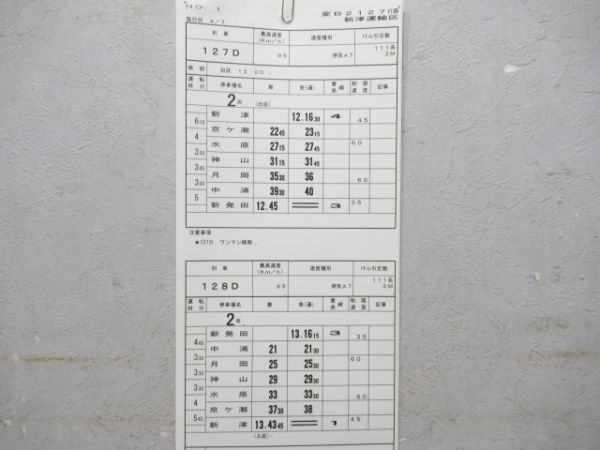 NO. 1
変B2127行路
施行日 4/7
新津運輸区
列車 最高速度(Km/h) 速度種別 けん引定数
127D 95 停気A7 111系 2M
発前 出区 12.00.
運転時分 停車場名 着 発(通) 着発線 制限速度 記事
2両 (出区)
新津 12.1630 4 45
615
京ケ瀬 2245 2315
4 60
水原 2715 2745
330
神山 3115 3145
345
月岡 3530 36
330 60
中浦 3930 40
5 35
新発田 12.45 3
注意事項
★127D ワンマン解除.
列車 最高速度(Km/h) 速度種別 けん引定数
128D 95 停気A7 111系 2M
運転時分 停車場名 着 発(通) 着発線 制限速度 記事
2両
新発田 13.1615 3 35
445
中浦 21 2130
330 60
月岡 25 2530
330
神山 29 2930
330
水原 33 3330 60
4
京ケ瀬 3730 38
545 45
新津 13.4345 1
(入区)